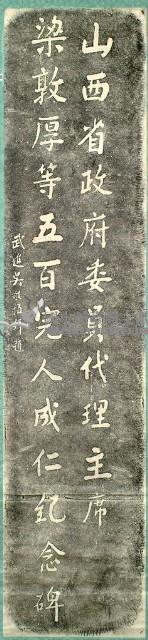 山西省政府委員代理主席
梁敦厚等五百完人成仁紀念碑
武進吳